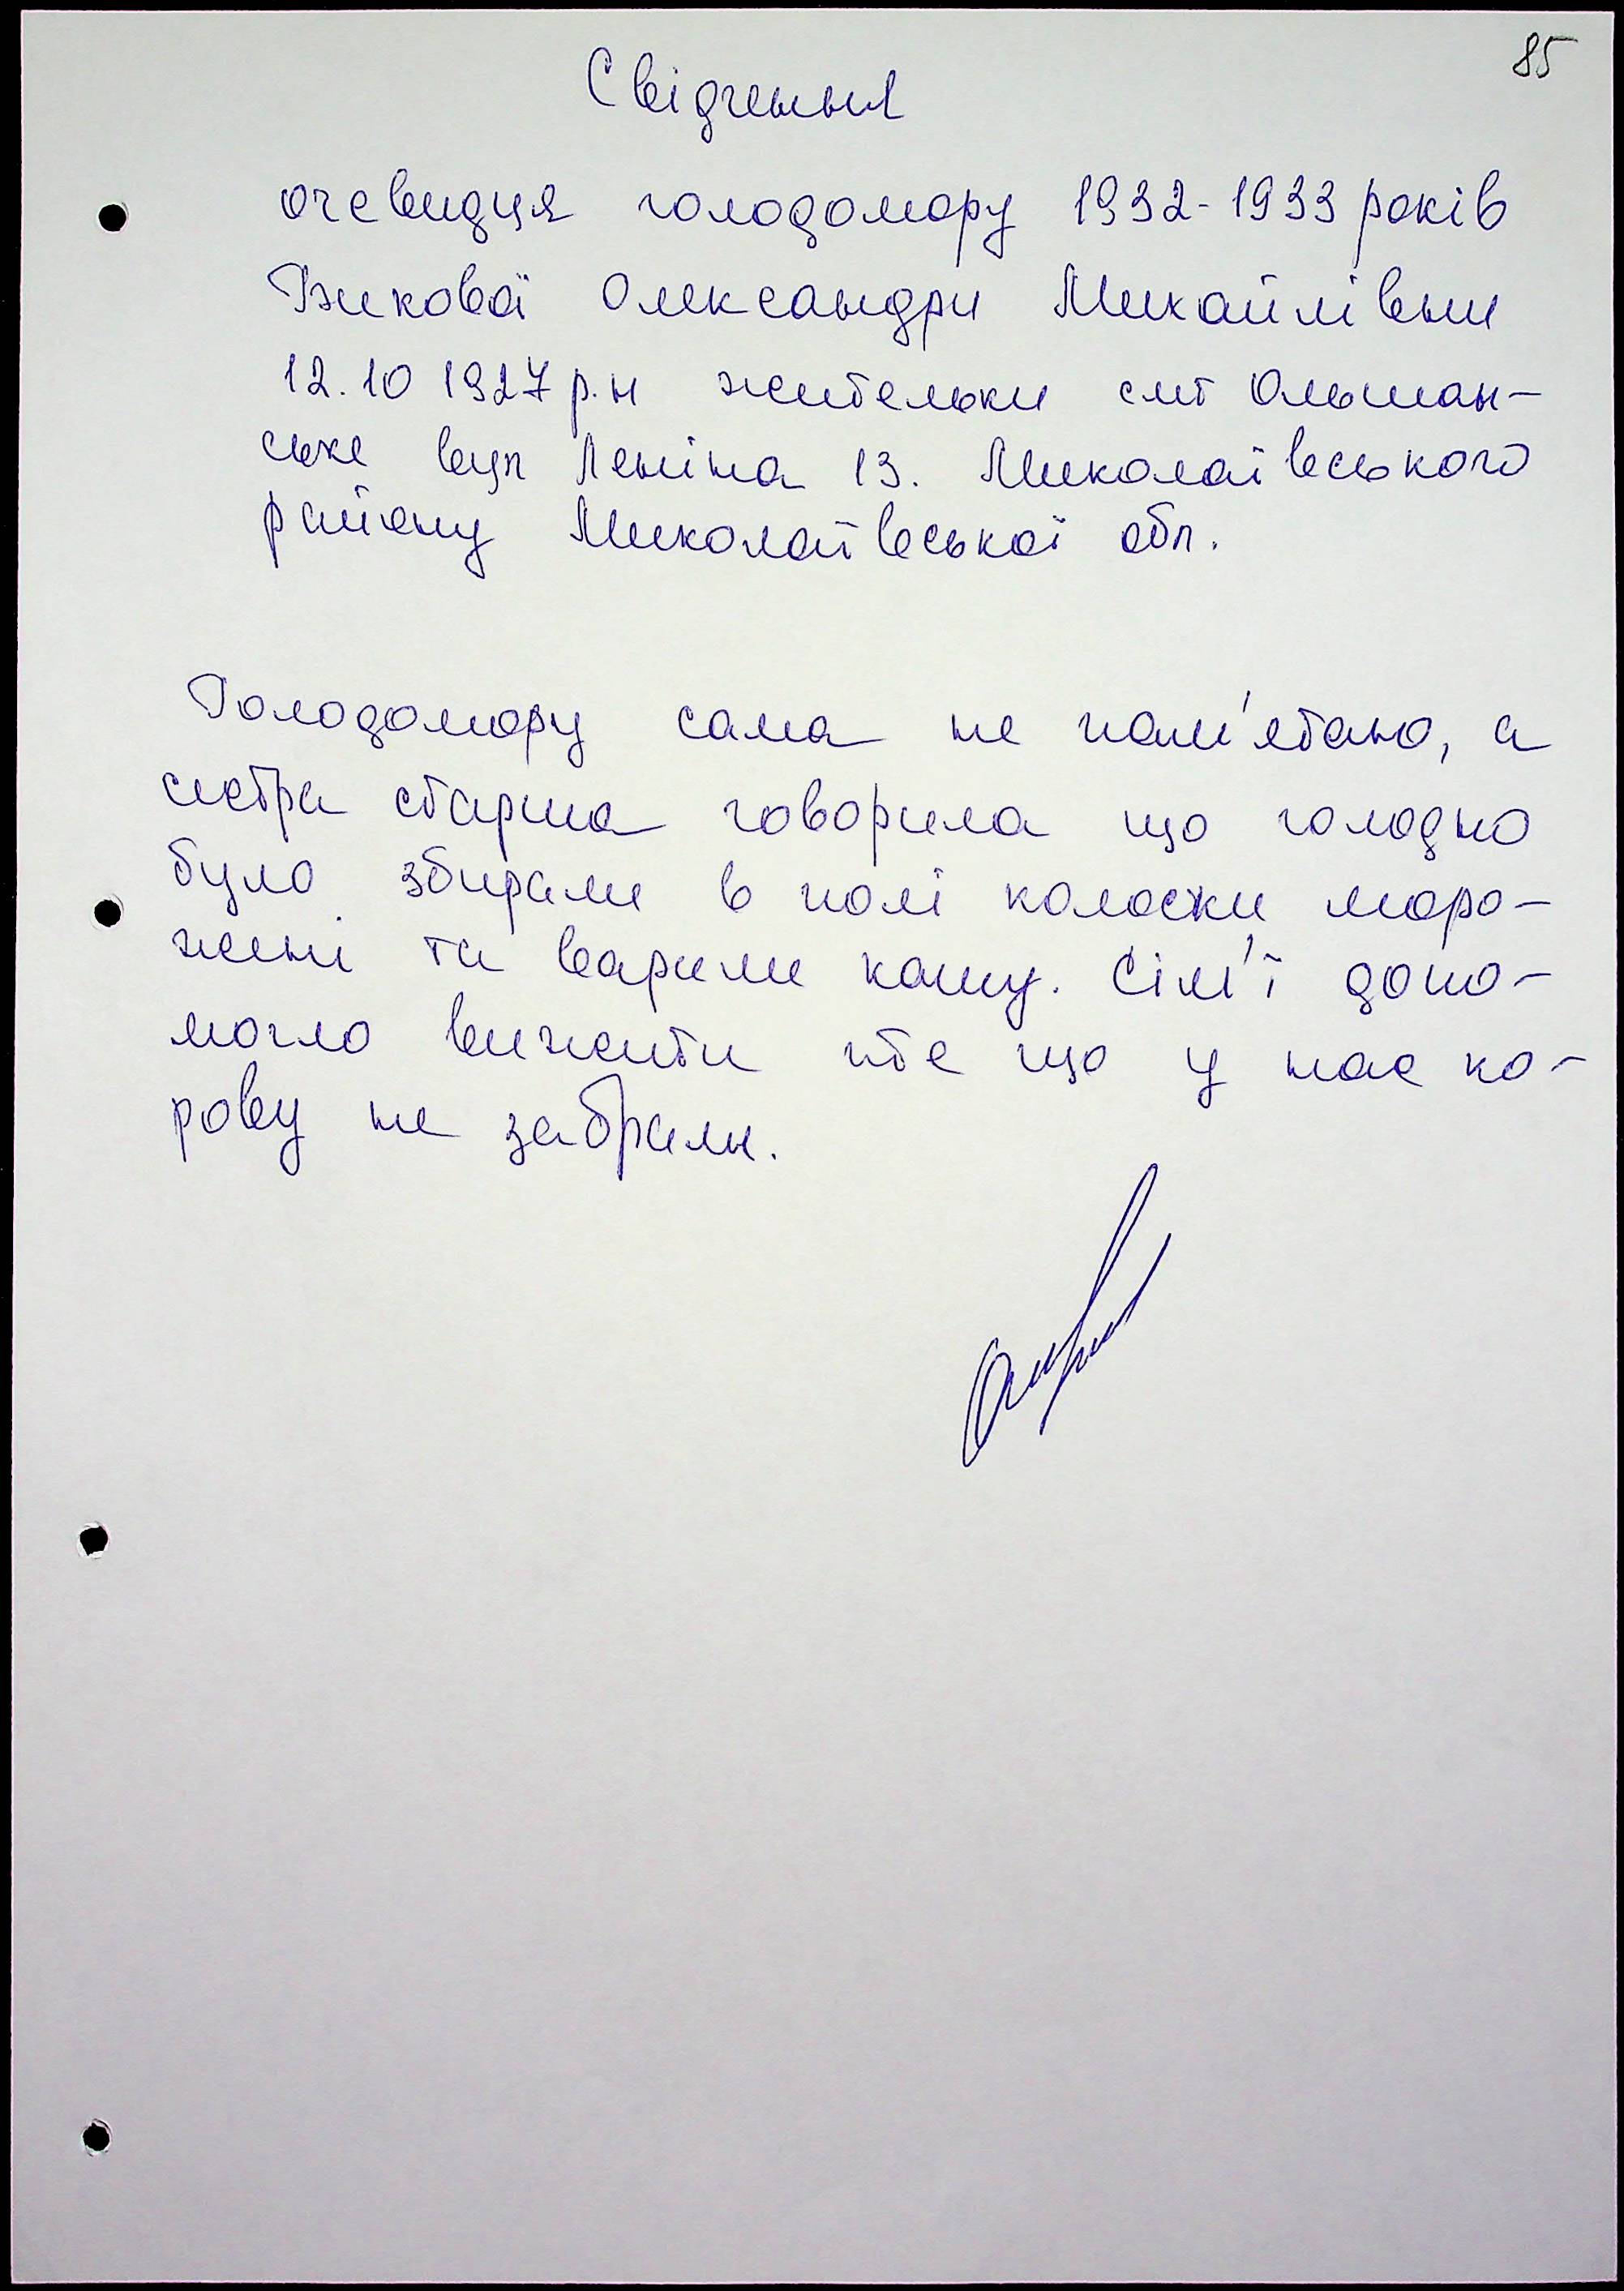 85
Свідчення
очевидця голодомору 1932-1933 років
Бикової Олександри Михайлівни
12.10 1927 р.н жительки смт Ольшан-
ське вул Леніна 13. Миколаївського
району Миколаївської обл.
Голодомору сама не пам'ятаю, а
сестра старша говорила що голодно
було збирали в полі колоски моро-
жені та варили кашу. Сім'ї допо-
могло вижити те що у нас ко-
рову не забрали.